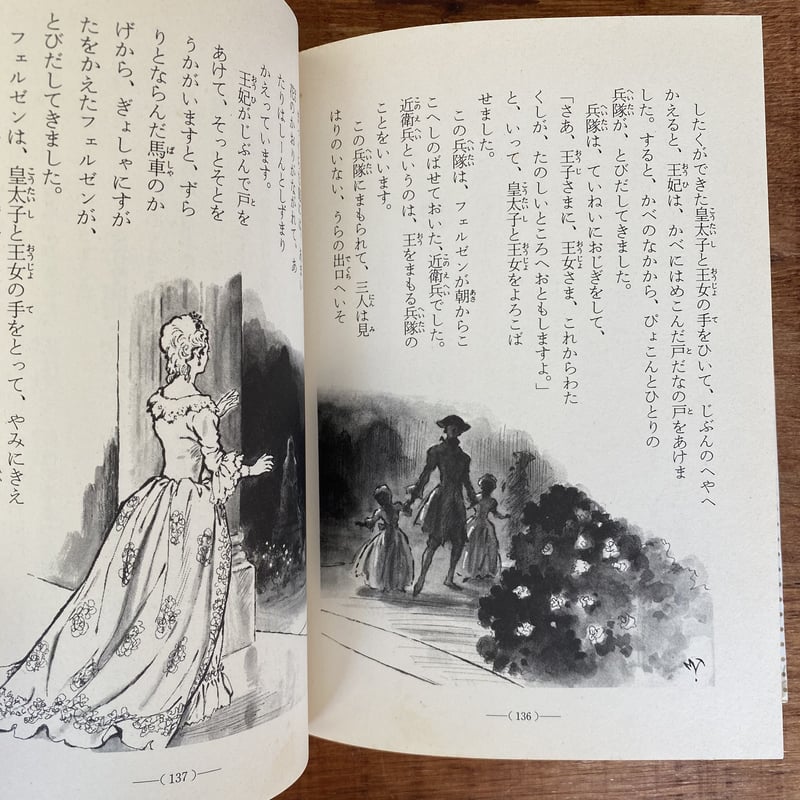 したくができた皇太子と王女の手をひいて、じぶんのへやへ
かえると、王妃は、かべにはめこんだ戸だなの戸をあけま
した。すると、かべのなかから、ぴょこんとひとりの
兵隊が、とびだしてきました。
兵隊は、ていねいにおじぎをして、
「さあ、王子さまに、王女さま、これからわた
くしが、たのしいところへおともしますよ。」
と、いって、皇太子と王女をよろこば
せました。
この兵隊は、フェルゼンが朝からこ
こへしのばせておいた、近衛兵でした。
近衛兵というのは、王をまもる兵隊の
ことをいいます。
この兵隊にまもられて、三人は見
はりのいない、うらの出口へいそ
(136)
のかおりがながれて、あ
たりはしーんとしずまり
かえっています。
王妃がじぶんで戸を
あけて、そっとそとを
うかがいますと、ずら
りとならんだ馬車のか
げから、ぎょしゃにすが
たをかえたフェルゼンが、
とびだしてきました。
フェルゼンは、皇太子と王女の手をとって、やみにきえ
(137)